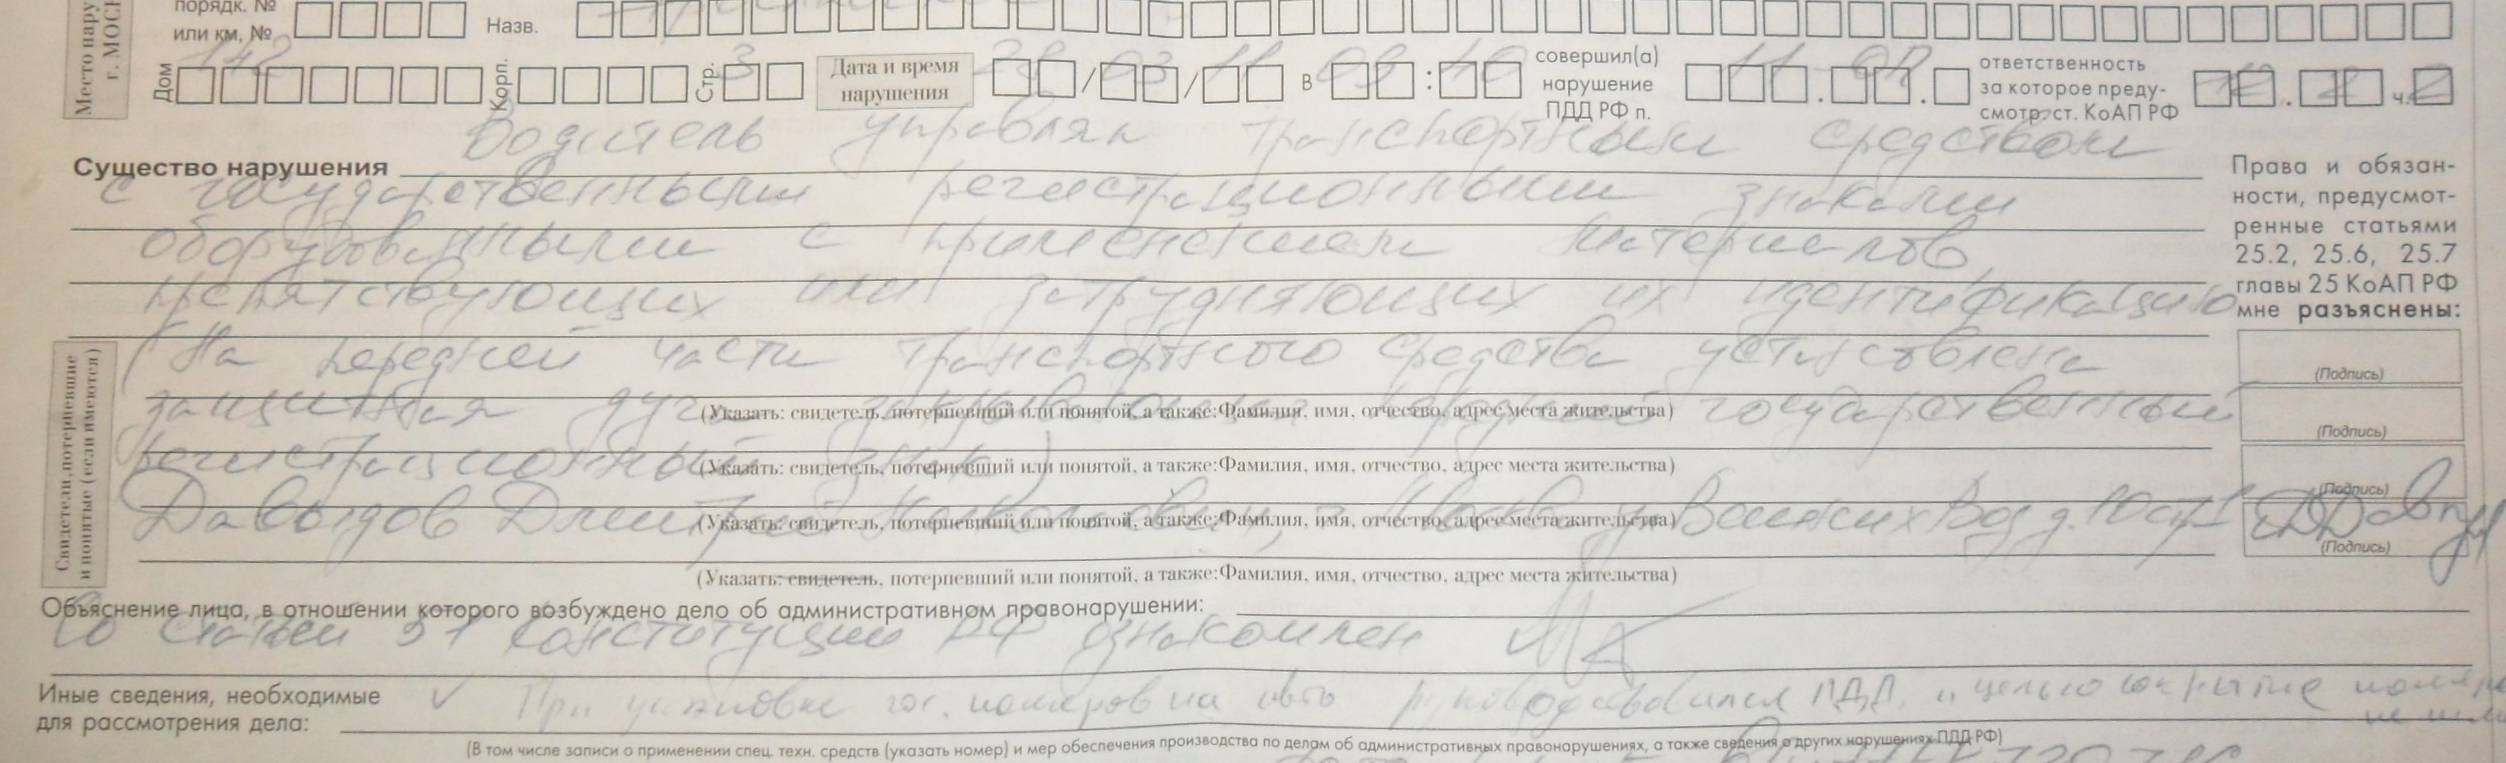 Место нару
г. МОСК
порядк. №
или км, №
Назв.
Дом 112 Корп. Стр. 3 Дата и время нарушения / 03 / 11 В : совершил(а) нарушение ПДД РФ п. 11 . . ответственность за которое преду-смотр. ст. КоАП РФ 12 . 2 ч. 2
Водитель управлял транспортным средством
Существо нарушения
с государственными регистрационными знаками
оборудованными с применением материалов,
препятствующих или затрудняющих их идентификацию
(На передней части транспортного средства установлена
защитная дуга закрывающая передний государственный
регистрационный знак)
Давыдов Дмитрий г. Москва у Воинских Воз д. 10 ст 1
Права и обязан-
ности, предусмот-
ренные статьями
25.2, 25.6, 25.7
главы 25 КоАП РФ
мне разъяснены:
(Подпись)
(Подпись)
(Подпись)
(Подпись)
Свидетели, потерпевшие
и понятые (если имеются)
(Указать: свидетель, потерпевший или понятой, а также:Фамилия, имя, отчество, адрес места жительства)
(Указать: свидетель, потерпевший или понятой, а также:Фамилия, имя, отчество, адрес места жительства)
(Указать: свидетель, потерпевший или понятой, а также:Фамилия, имя, отчество, адрес места жительства)
(Указать: свидетель, потерпевший или понятой, а также:Фамилия, имя, отчество, адрес места жительства)
Объяснение лица, в отношении которого возбуждено дело об административном правонарушении:
Со статьей 51 конституции РФ ознакомлен
Иные сведения, необходимые
для рассмотрения дела:
При установке гос. номеров на авто руководствовался ПДД, и целью сокрытие номера
не
(В том числе записи о применении спец. техн. средств (указать номер) и мер обеспечения производства по делам об административных правонарушениях, а также сведения о других нарушениях ПДД РФ)